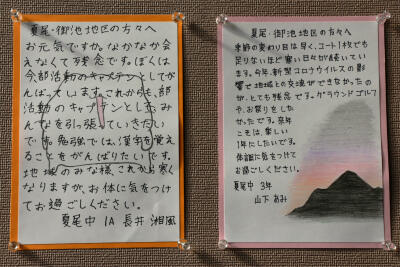 夏尾・御池地区の方々へ
お元気ですか。なかなか会
えなくて残念です。ぼくは
今部活動のキャプテンとしてがん
ばっています。これからも、部
活動のキャプテンとしてみ
んなを引っ張っていきたい
です。勉強では、漢字を覚え
ることをがんばりたいです。
地域のみな様、これから寒く
なりますが、お体に気をつけ
てお過ごしください。
夏尾中 1A 長井 湘風
夏尾・御池地区の方々へ
季節の変わり目は早く、コート1枚でも
足りないほど寒い日々が続いてい
ます。今年、新型コロナウイルスの影
響で地域との交流ができなかったの
が、とても残念です。グラウンドゴルフ
や、お祭りをした
かったです。来年
こそは、楽しい
1年にしたいです。
体調に気をつけて
お過ごしください。
夏尾中 3年
山下 あみ